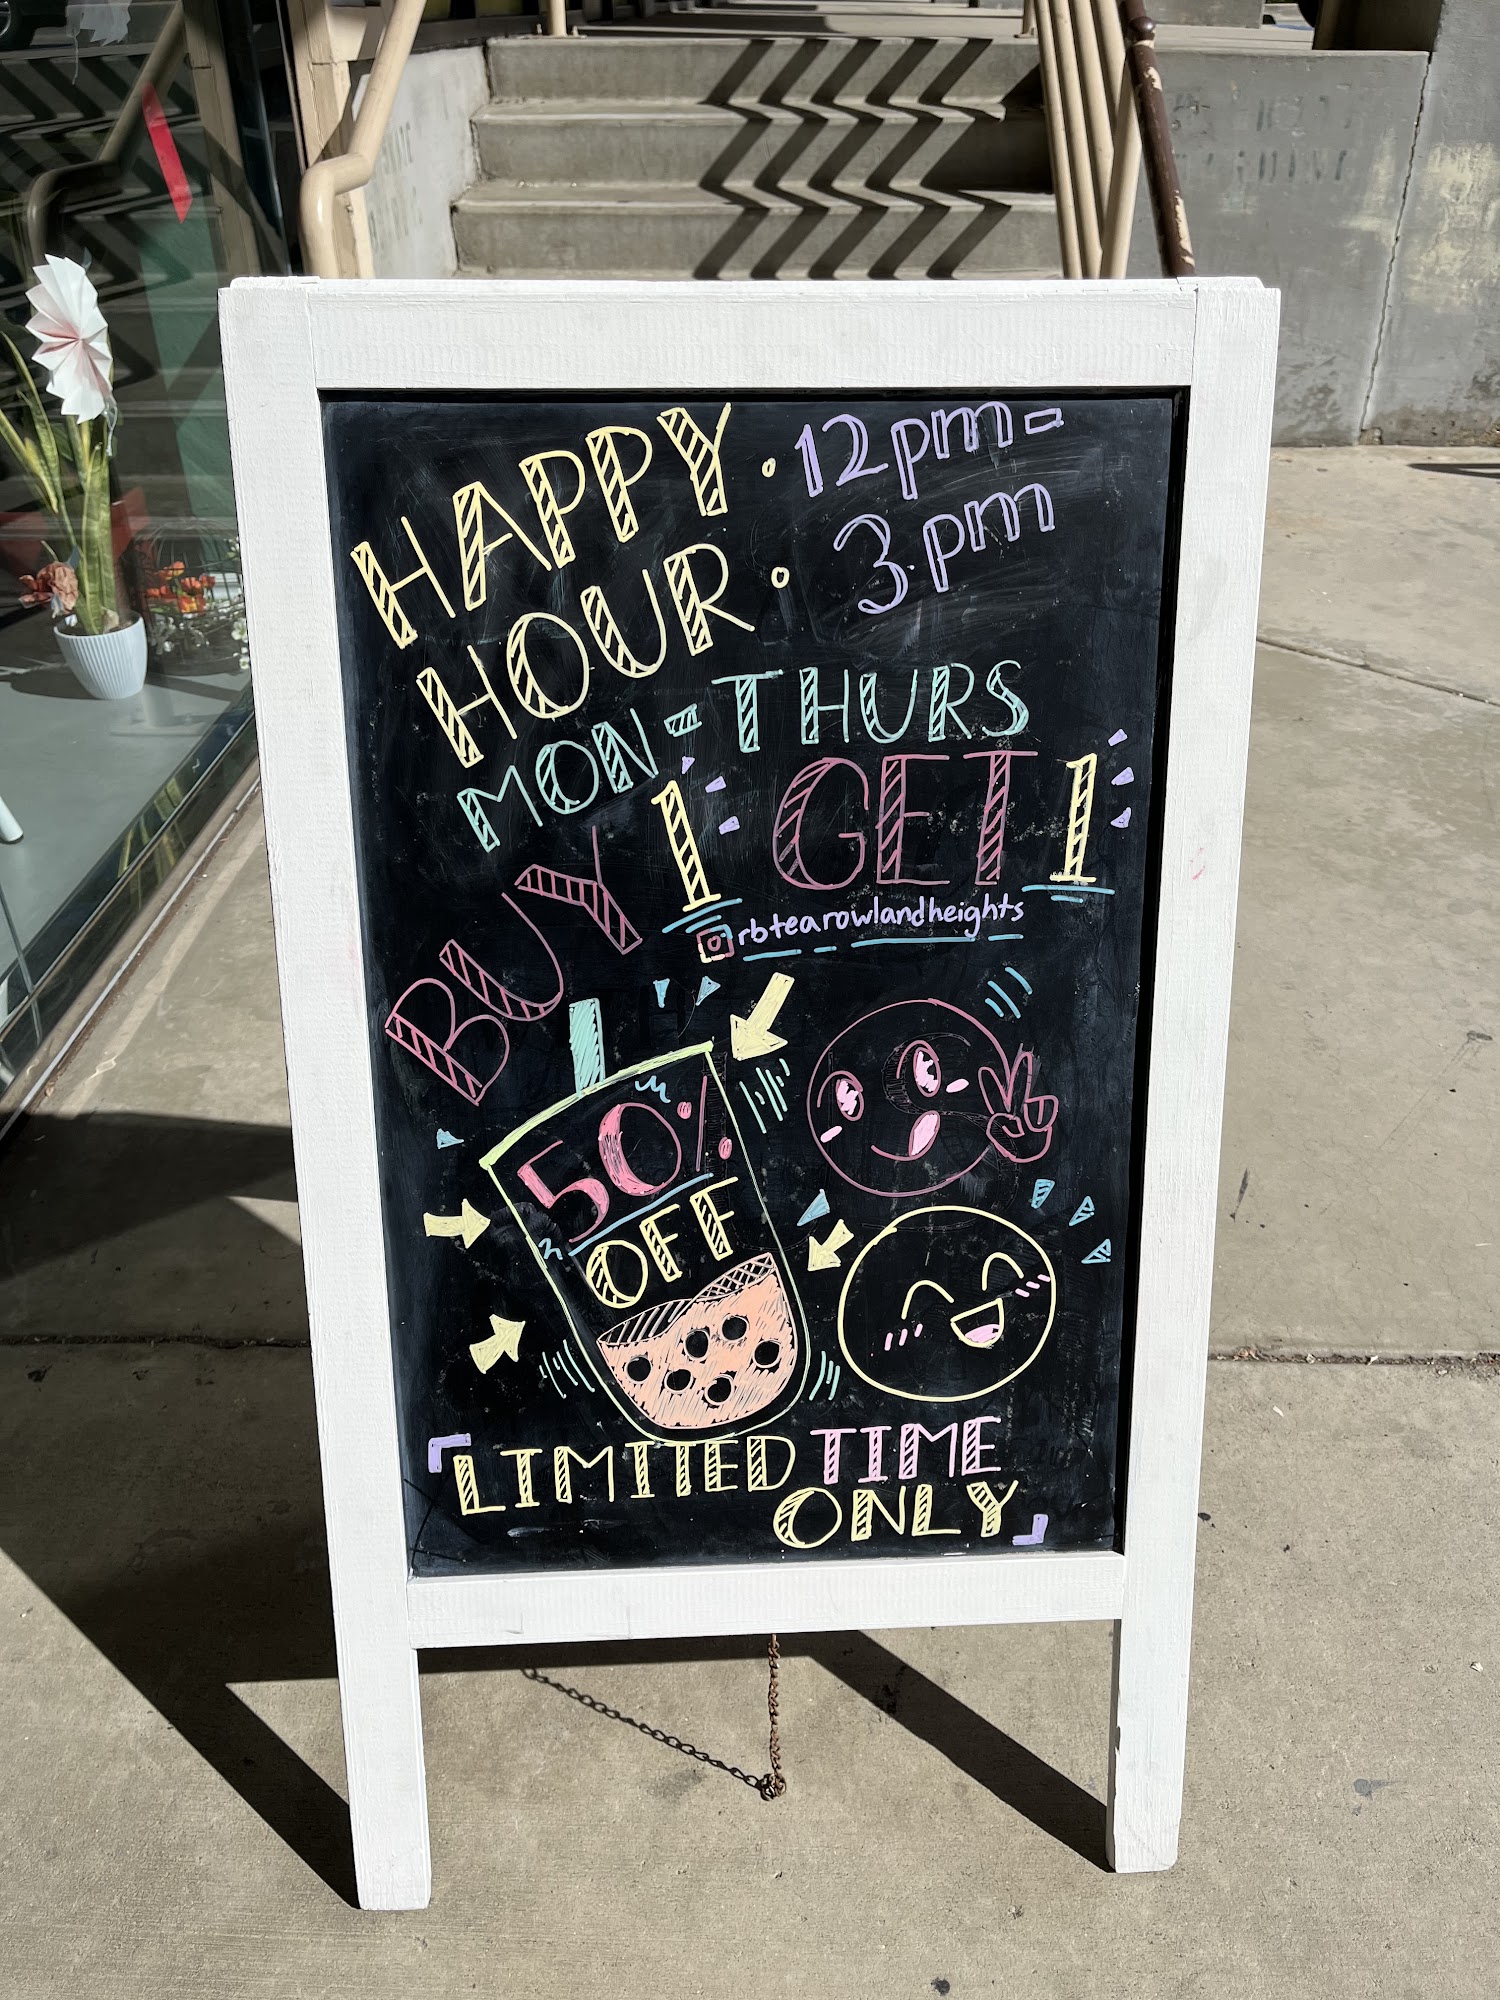 HAPPY
HOUR:
12pm-
3pm
MON-THURS
BUY 1 GET 1
rbtearowlandheights
50%
OFF
LIMITED TIME
ONLY